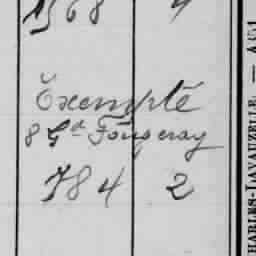 1568 4
Exempté
8 Gd Fougeray
784 2
HARLES-LAVAUZELLE. — A51